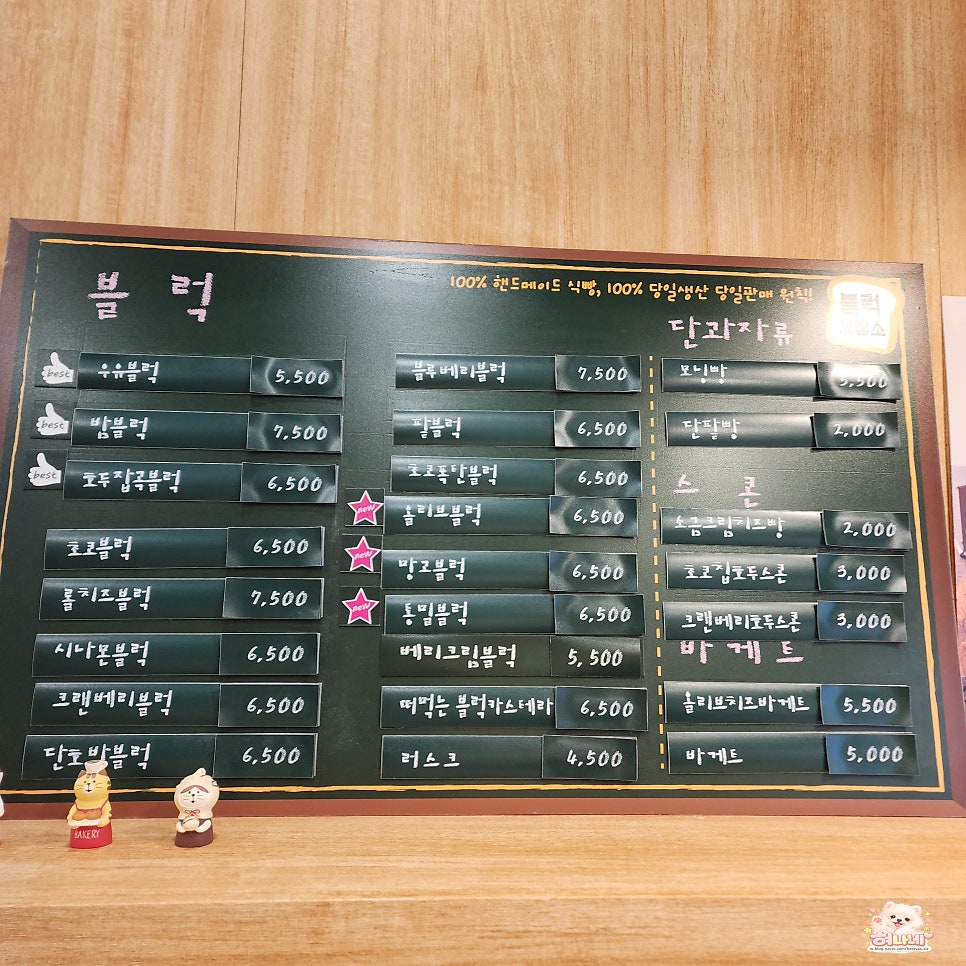 블럭
100% 핸드메이드 식빵, 100% 당일생산 당일판매 원칙!
best 우유블럭 5,500
best 밤블럭 7,500
best 호두잡곡블럭 6,500
초코블럭 6,500
롤치즈블럭 7,500
시나몬블럭 6,500
크랜베리블럭 6,500
단호박블럭 6,500
블루베리블럭 7,500
팥블럭 6,500
초코폭탄블럭 6,500
new 올리브블럭 6,500
new 망고블럭 6,500
new 통밀블럭 6,500
베리크림블럭 5,500
떠먹는 블럭카스테라 6,500
러스크 4,500
블럭
단과자류
모닝빵 3,500
단팥빵 2,000
스콘
소금크림치즈빵 2,000
초코칩호두스콘 3,000
크랜베리호두스콘 3,000
바게트
올리브치즈바게트 5,500
바게트 5,000
BAKERY
허나네